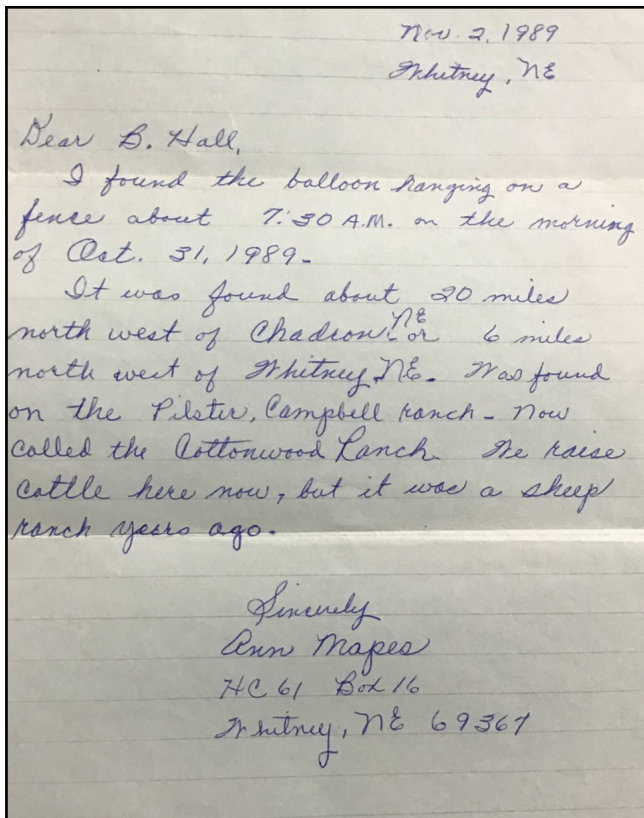 Nov. 2, 1989
Whitney, NE
Dear B. Hall,
I found the balloon hanging on a
fence about 7:30 A.M. on the morning
of Oct. 31, 1989.
It was found about 20 miles
north west of Chadron, NE or 6 miles
north west of Whitney, NE. Was found
on the Pilster, Campbell ranch - now
called the Cottonwood Ranch. We raise
cattle here now, but it was a sheep
ranch years ago.
Sincerely
Ann Mapes
HC 61 Box 16
Whitney, NE 69367